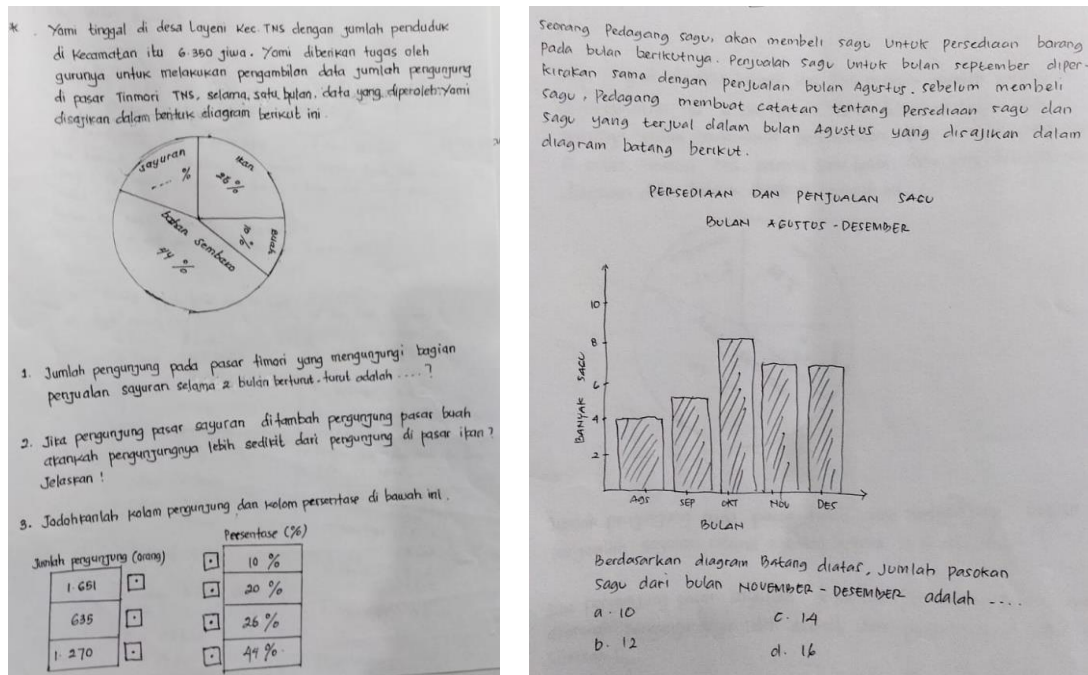 * . Yami tinggal di desa Layeni Kec. TNS dengan jumlah penduduk
di Kecamatan itu 6.350 jiwa. Yomi diberikan tugas oleh
gurunya untuk melakukan pengambilan data jumlah pengunjung
di pasar Tinmori TNS, selama satu bulan. data yang diperoleh Yomi
disajikan dalam bentuk diagram berikut ini.
sayuran
.... %
ikan
26 %
Buah
bahan sembako
44 %
1. Jumlah pengunjung pada pasar timori yang mengunjungi bagian
penjualan sayuran selama 2 bulan berturut-turut adalah ....?
2. Jika pengunjung pasar sayuran ditambah pengunjung pasar buah
akankah pengunjungnya lebih sedikit dari pengunjung di pasar ikan?
Jelaskan!
3. Jodohkanlah kolom pengunjung dan kolom persentase di bawah ini.
Jumlah pengunjung (orang)
1.651
635
1.270
Persentase (%)
10 %
20 %
26 %
44 %
Seorang Pedagang sagu, akan membeli sagu untuk Persediaan barang
Pada bulan berikutnya. Penjualan sagu untuk bulan september diper-
kirakan sama dengan Penjualan bulan Agustus. sebelum membeli
sagu, Pedagang membuat catatan tentang Persediaan sagu dan
sagu yang terjual dalam bulan Agustus yang disajikan dalam
diagram batang berikut.
PERSEDIAAN DAN PENJUALAN SAGU
BULAN AGUSTUS - DESEMBER
BANYAK SAGU
10
8
6
4
2
AGS SEP OKT NOV DES
BULAN
Berdasarkan diagram Batang diatas, Jumlah Pasokan
Sagu dari bulan NOVEMBER - DESEMBER adalah ....
a. 10
b. 12
c. 14
d. 16